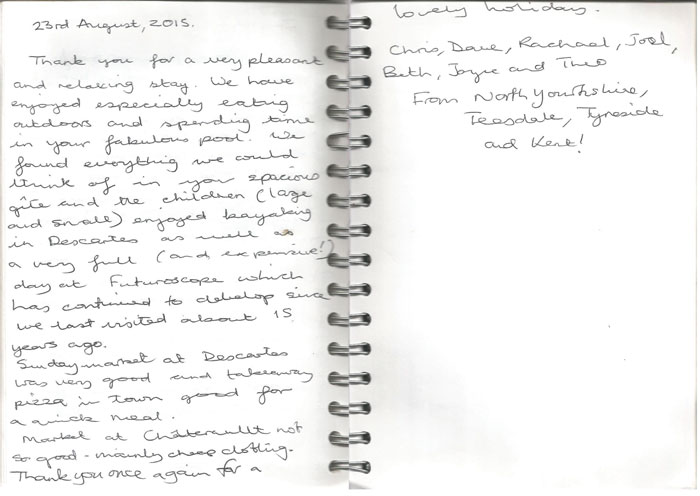 23rd August, 2015.
Thank you for a very pleasant
and relaxing stay. We have
enjoyed especially eating
outdoors and spending time
in your fabulous pool. We
found everything we could
think of in your spacious
gîte and the children (large
and small) enjoyed kayaking
in Descartes as well as
a very full (and expensive!)
day at Futuroscope which
has continued to develop since
we last visited about 15
years ago.
Sunday market at Descartes
was very good and takeaway
pizza in town good for
a quick meal.
Market at Châteraullt not
so good - mainly cheap clothing.
Thank you once again for a
lovely holiday.
Chris, Dave, Rachael, Joel,
Beth, Joyce and Theo
From North Yourkshire,
Teesdale, Tyneside
and Kent!